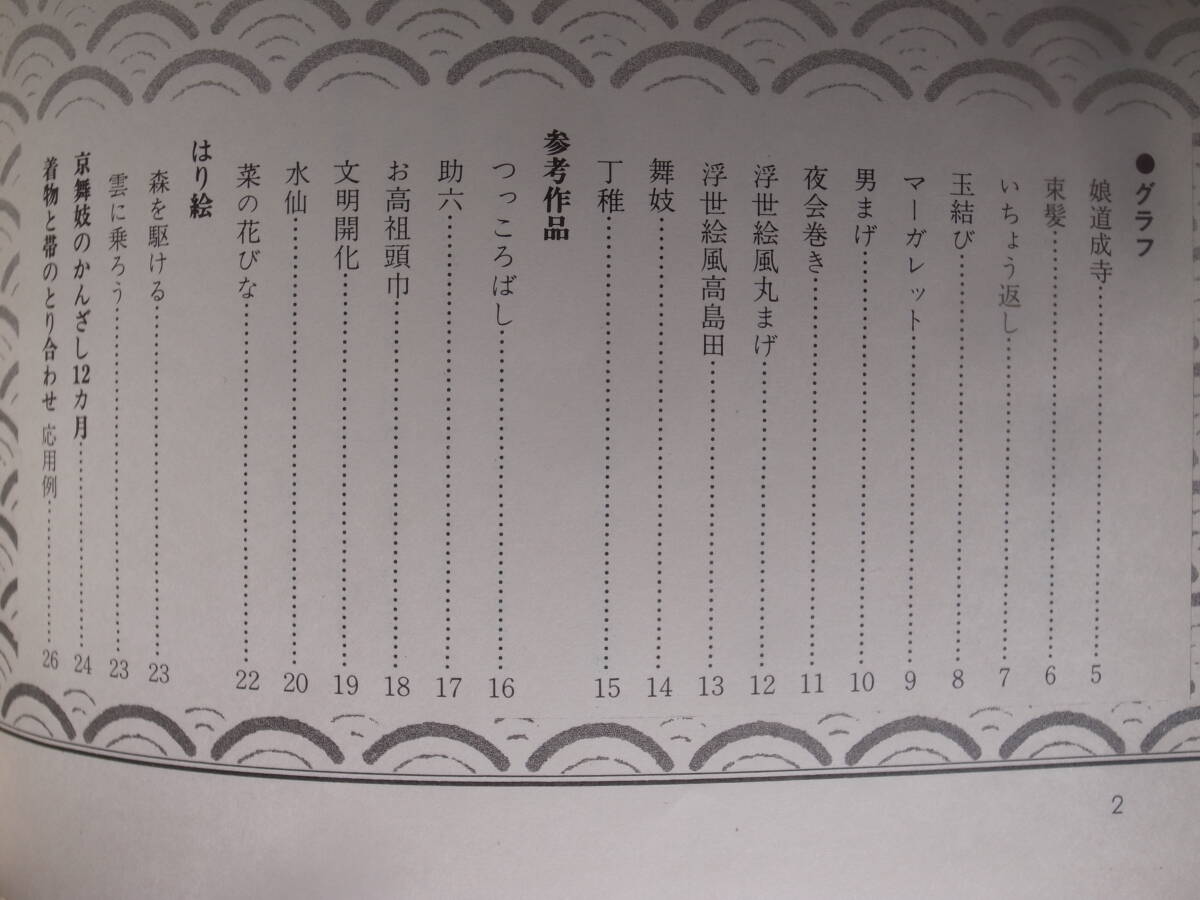 ●グラフ
娘道成寺……………………5
束髪……………………6
いちょう返し……………………7
玉結び……………………8
マーガレット……………………9
男まげ……………………10
夜会巻き……………………11
浮世絵風丸まげ……………………12
浮世絵風高島田……………………13
舞妓……………………14
丁稚……………………15
参考作品
つっころばし……………………16
助六……………………17
お高祖頭巾……………………18
文明開化……………………19
水仙……………………20
菜の花びな……………………22
はり絵
森を駆ける……………………23
雲に乗ろう……………………23
京舞妓のかんざし12カ月……………………24
着物と帯のとり合わせ 応用例……………………26
2